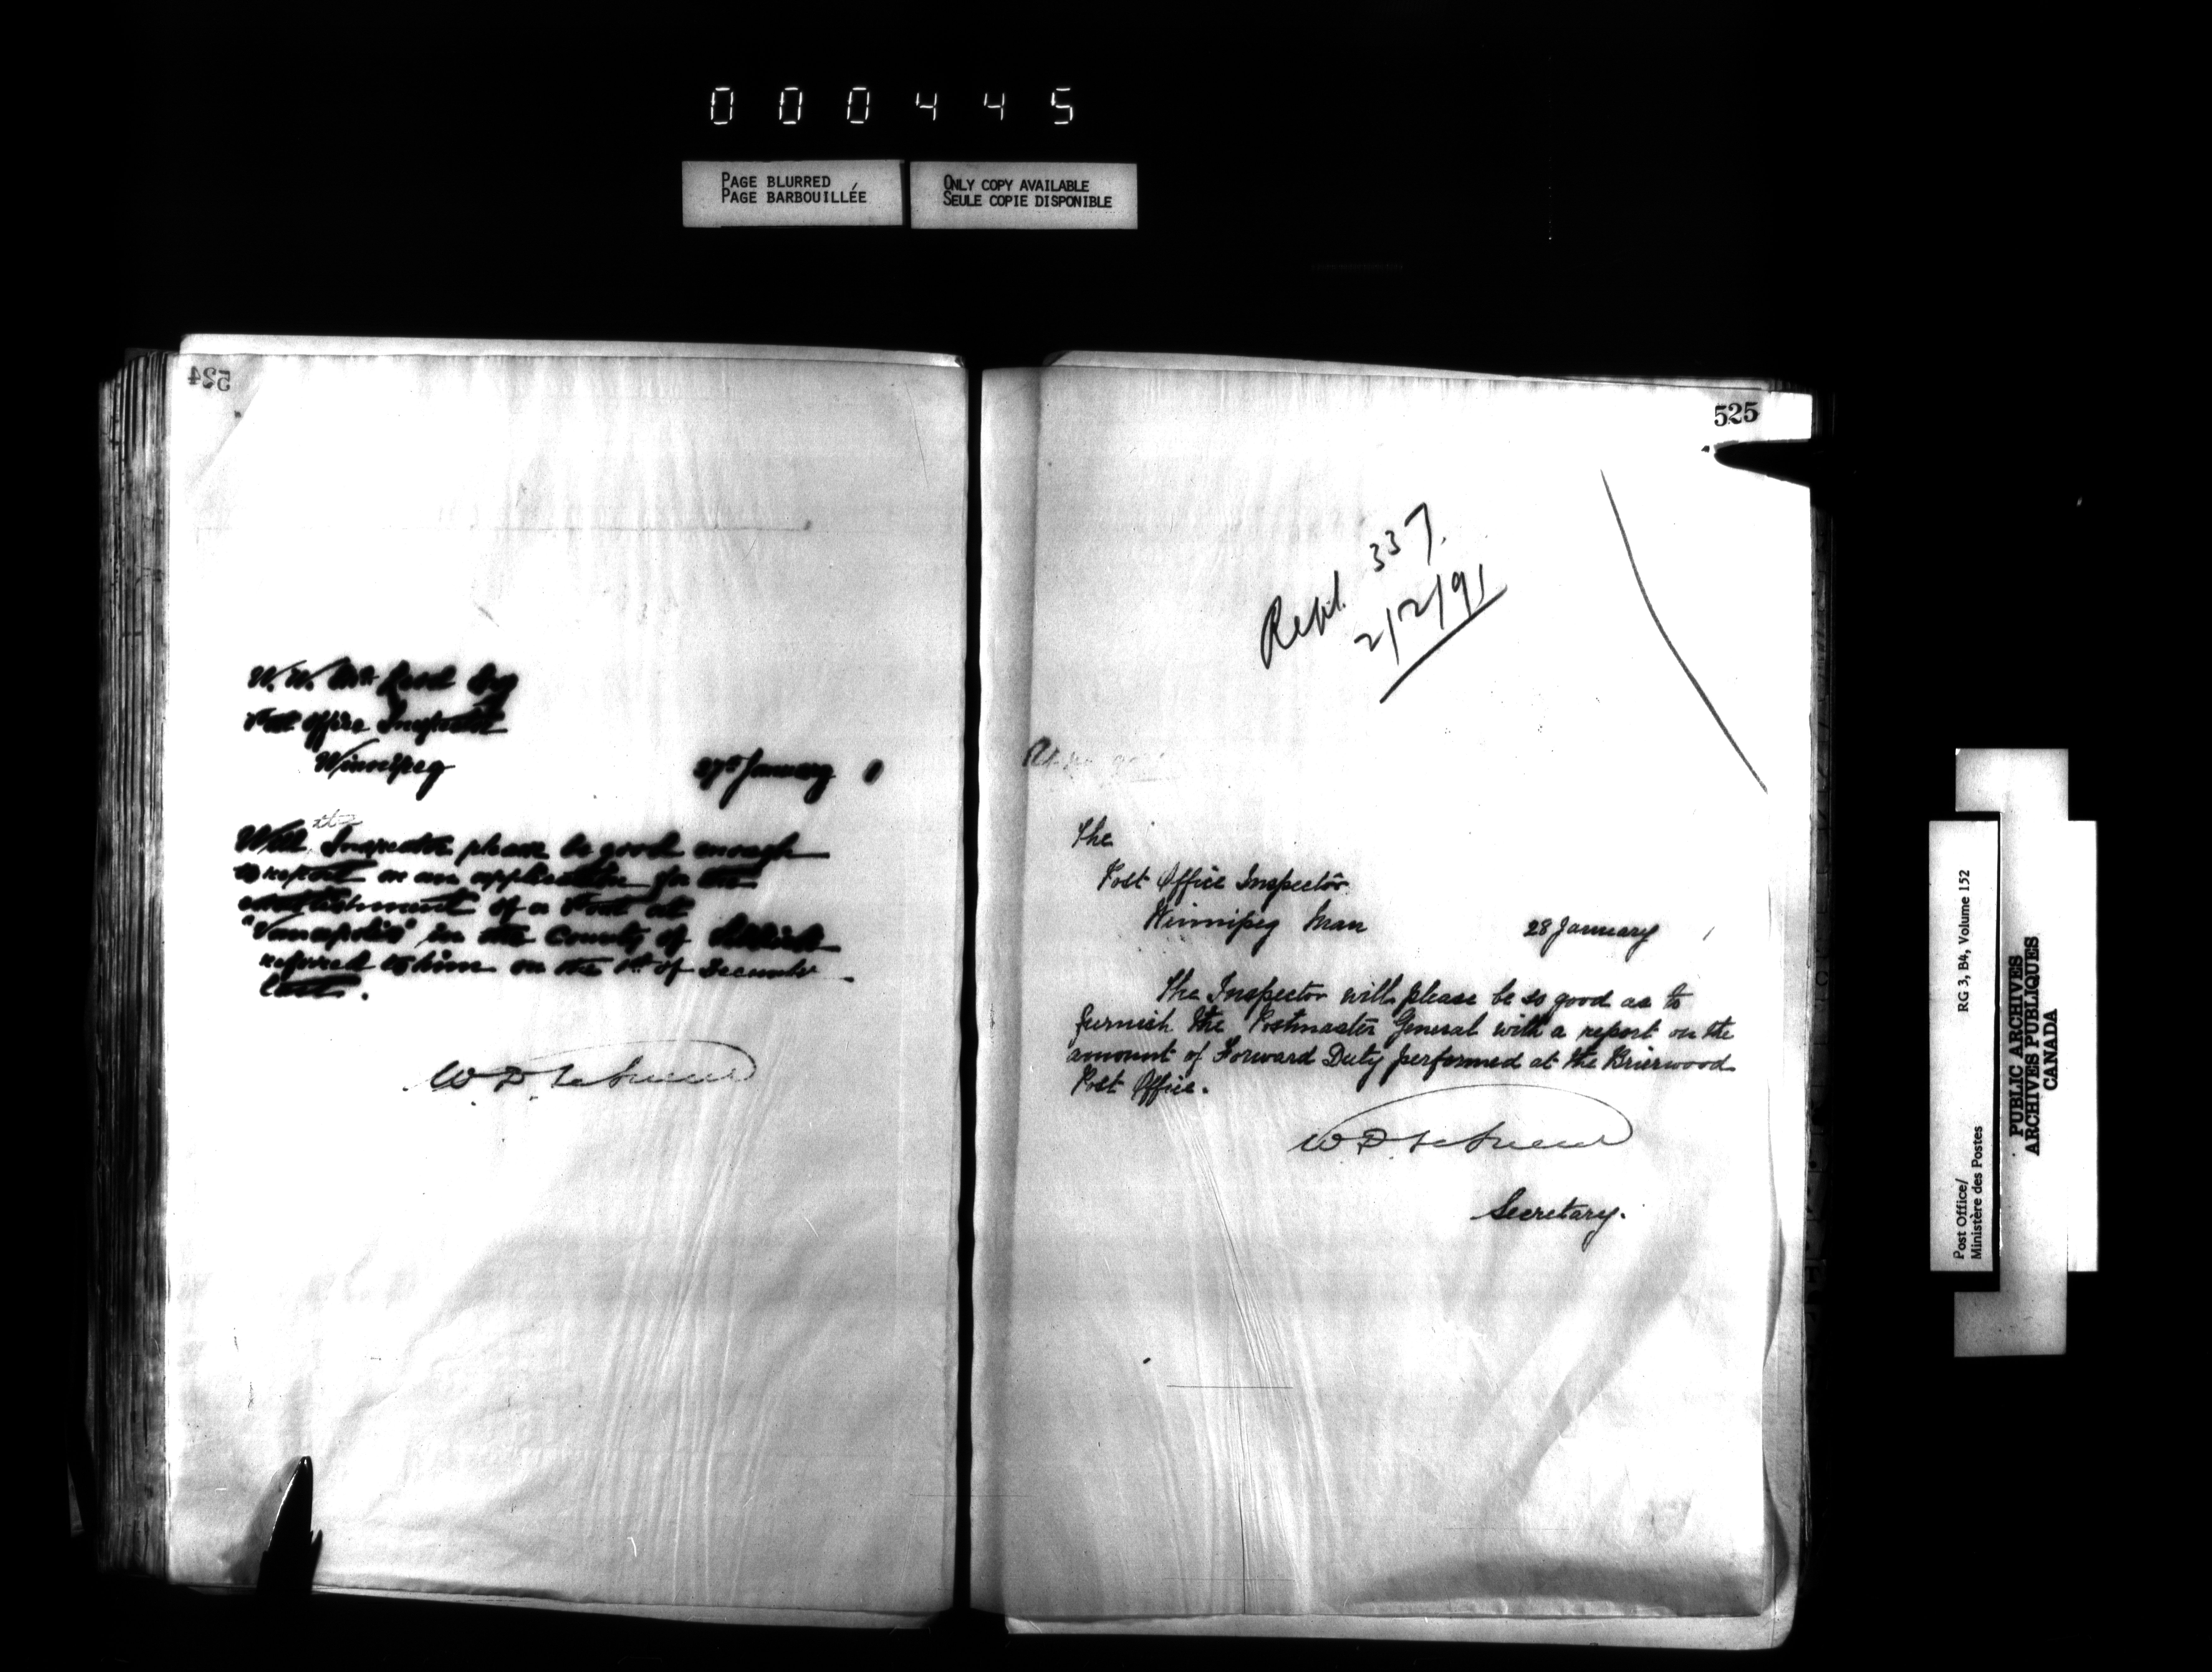 000445
PAGE BLURRED
PAGE BARBOUILLÉE
ONLY COPY AVAILABLE
SEULE COPIE DISPONIBLE
524
W. W. McLeod Esq
Post Office Inspector
Winnipeg
27th January 1
Will the Inspector please be good enough
to report on an application for the
establishment of a Post at
in the County of Selkirk
referred to him on the 1st of December
last.
W. D. LeSueur
525
337.
2/2/91
The
Post Office Inspector
Winnipeg Man
28 January 1
The Inspector will please be so good as to
furnish the Postmaster General with a report on the
amount of Forward Duty performed at the Brierwood
Post Office.
W. D. LeSueur
Secretary.
Post Office/
Ministère des Postes
RG 3, B4, Volume 152
PUBLIC ARCHIVES
ARCHIVES PUBLIQUES
CANADA